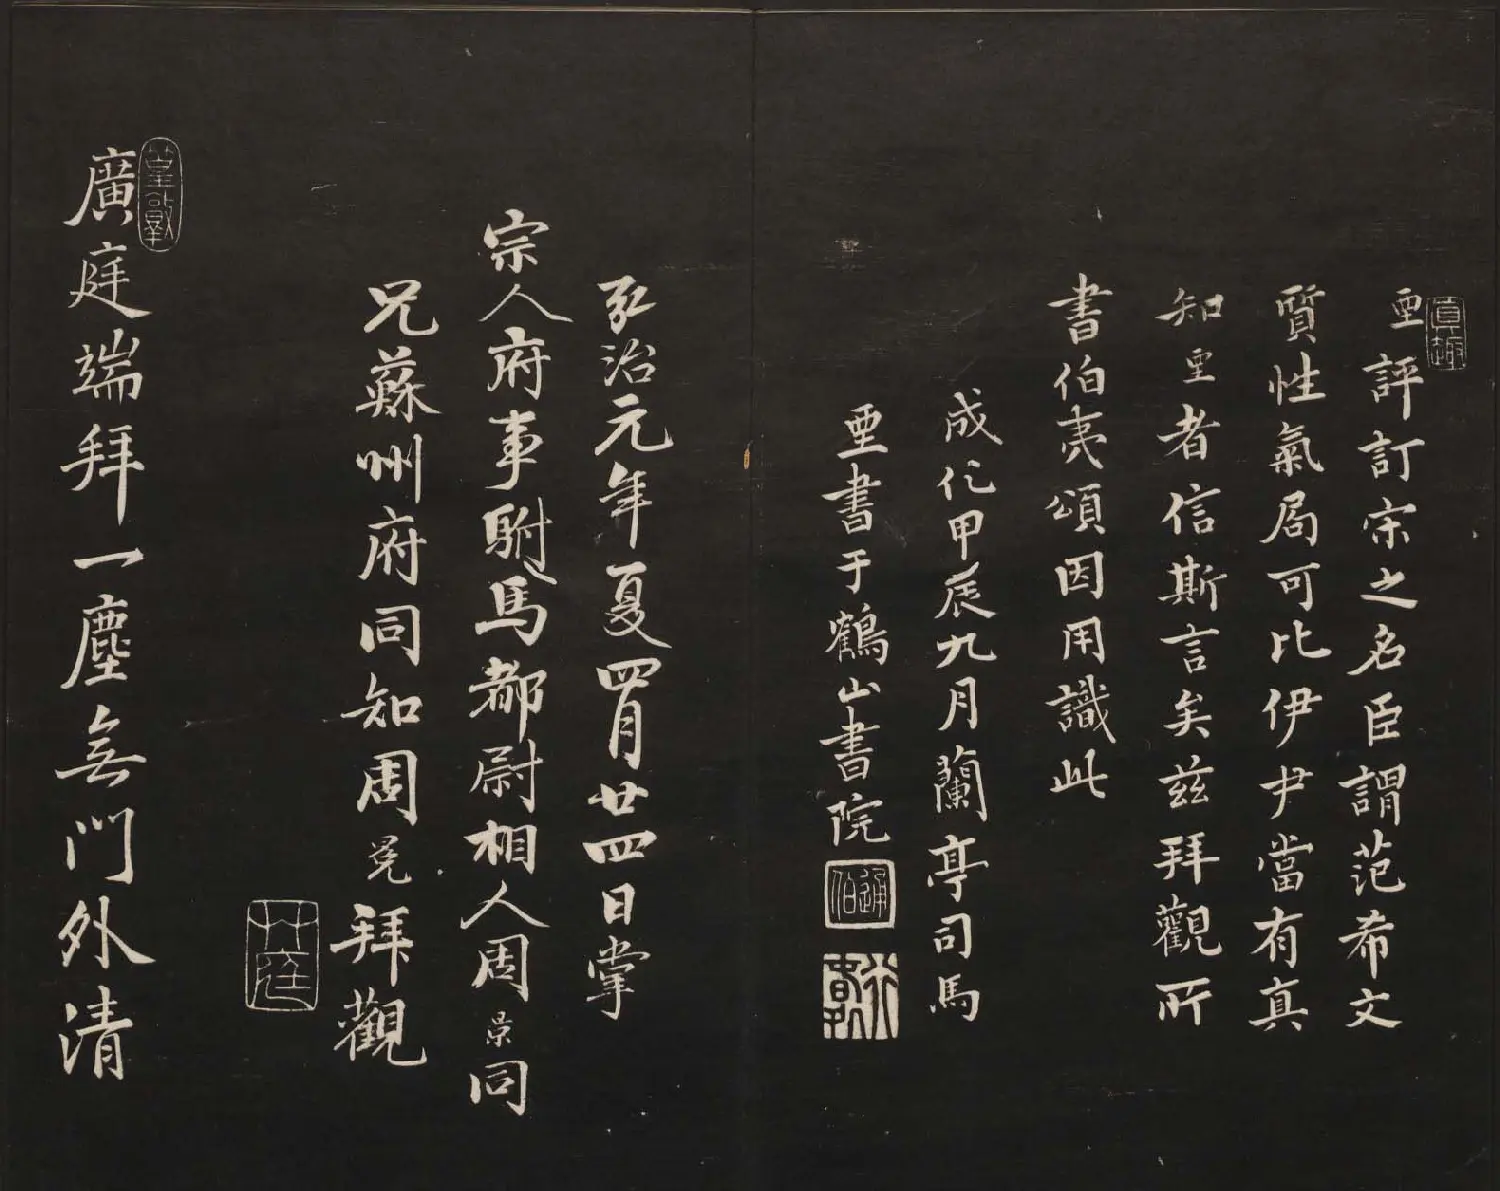 真趣
垔評訂宋之名臣謂范希文
質性氣局可比伊尹當有真
知垔者信斯言矣茲拜觀所
書伯夷頌因用識此
成化甲辰九月蘭亭司馬
垔書于鶴山書院
通伯
弘治元年夏四月廿四日掌
宗人府事駙馬都尉相人周景同
兄蘇州府同知周冕拜觀
篁墩
廣庭端拜一塵無門外清